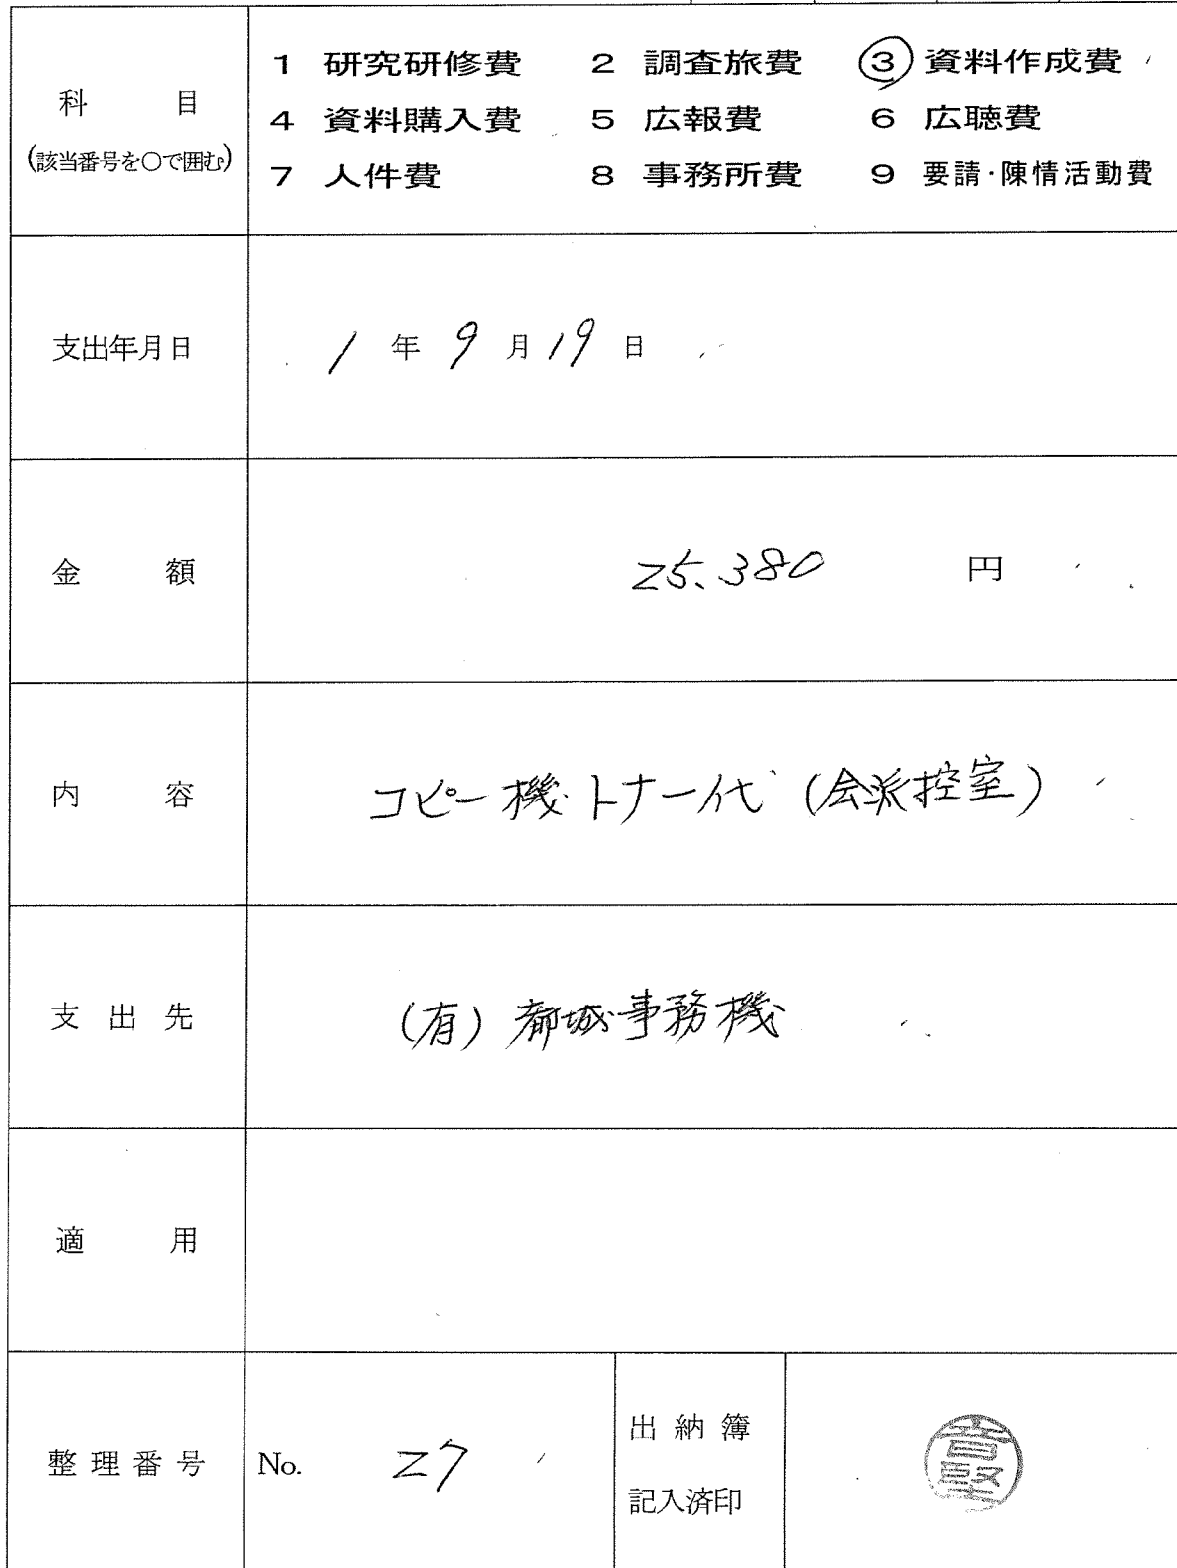 1 研究研修費 2 調査旅費 ③ 資料作成費
科 目
4 資料購入費 5 広報費 6 広聴費
(該当番号を○で囲む)
7 人件費 8 事務所費 9 要請·陳情活動費
支出年月日 1 年 9 月 19 日
金 額 25.380 円
内 容 コピー機トナー代 (会派控室)
支 出 先 (有) 都城事務機
適 用
整 理 番 号 No. 27
出 納 簿
記入済印